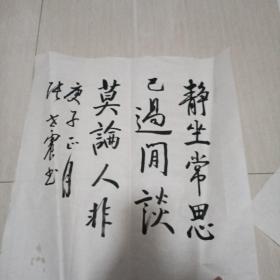 静坐常思
己過閒談
莫論人非
庚子正月
张世震书